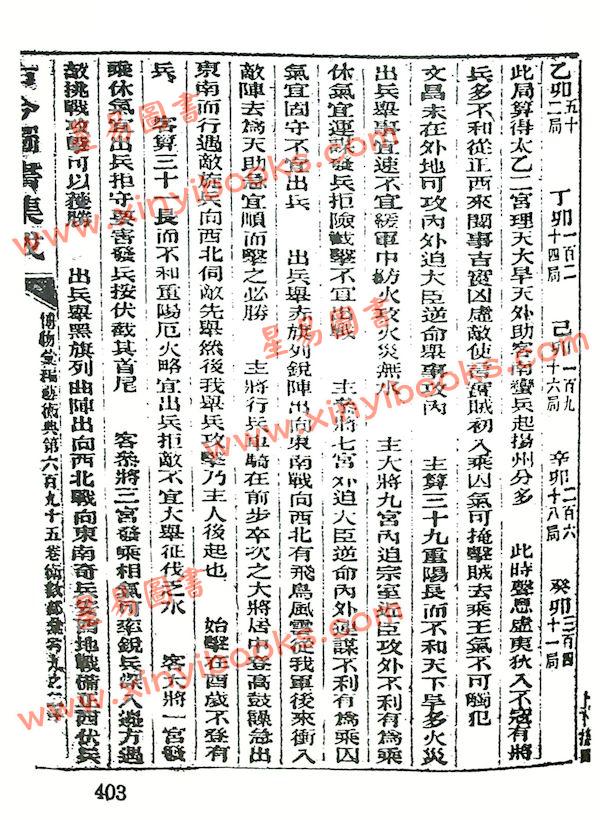 乙卯五十二局 丁卯一百二十四局 己卯一百九十六局 辛卯二百六十八局 癸卯三百四十一局
此局算得太乙二宮理天大旱天外助客南蠻兵起揚州分多 此時聲息虛東狄入不寇有將
兵多不利從正西來聞事吉實凶虛敵使言實賊初入乘囚氣可掩擊賊去乘王氣不可觸犯
文昌未在外地可攻內外迫大臣逆命舉事攻內 主算三十九重陽長而不和天下旱多火災
出兵舉事宜速不宜緩軍中防火攻火災無水 主大將九宮內迫宗室近臣攻外不利有為乘
休氣宜運謀發兵拒險截擊不宜出戰 主參將七宮外迫大臣逆命內外運謀不利有為乘囚
氣宜固守不宜出兵 出兵舉赤旗列銳陣出向東南戰向西北有飛鳥風雲從我軍後來衝入
敵陣去為天助急宜順而擊之必勝 主將行兵車騎在前步卒次之大將居中登高鼓譟急出
東南而行遇敵旌兵向西北伺敵先舉然後我舉兵攻擊乃主人後起也 始擊在酉歲不登有
兵 客算三十一長而不和重陽厄火略宜出兵拒敵不宜大舉征伐乏水 客大將一宮發
乘休氣宜出兵拒守要害發兵按伏截其首尾 客參將三宮發乘相氣可率銳兵深入遇方遇
敵挑戰攻擊可以獲勝 出兵舉黑旗列曲陣出向西北戰向東南奇兵 地戰備正酉伏兵
古今圖書集成 博物彙編藝術典第六百九十五卷術數部彙考九之
403
星易圖書
www.xinyibooks.com
星易圖書
www.xinyibooks.com
星易圖書
www.xinyibooks.com